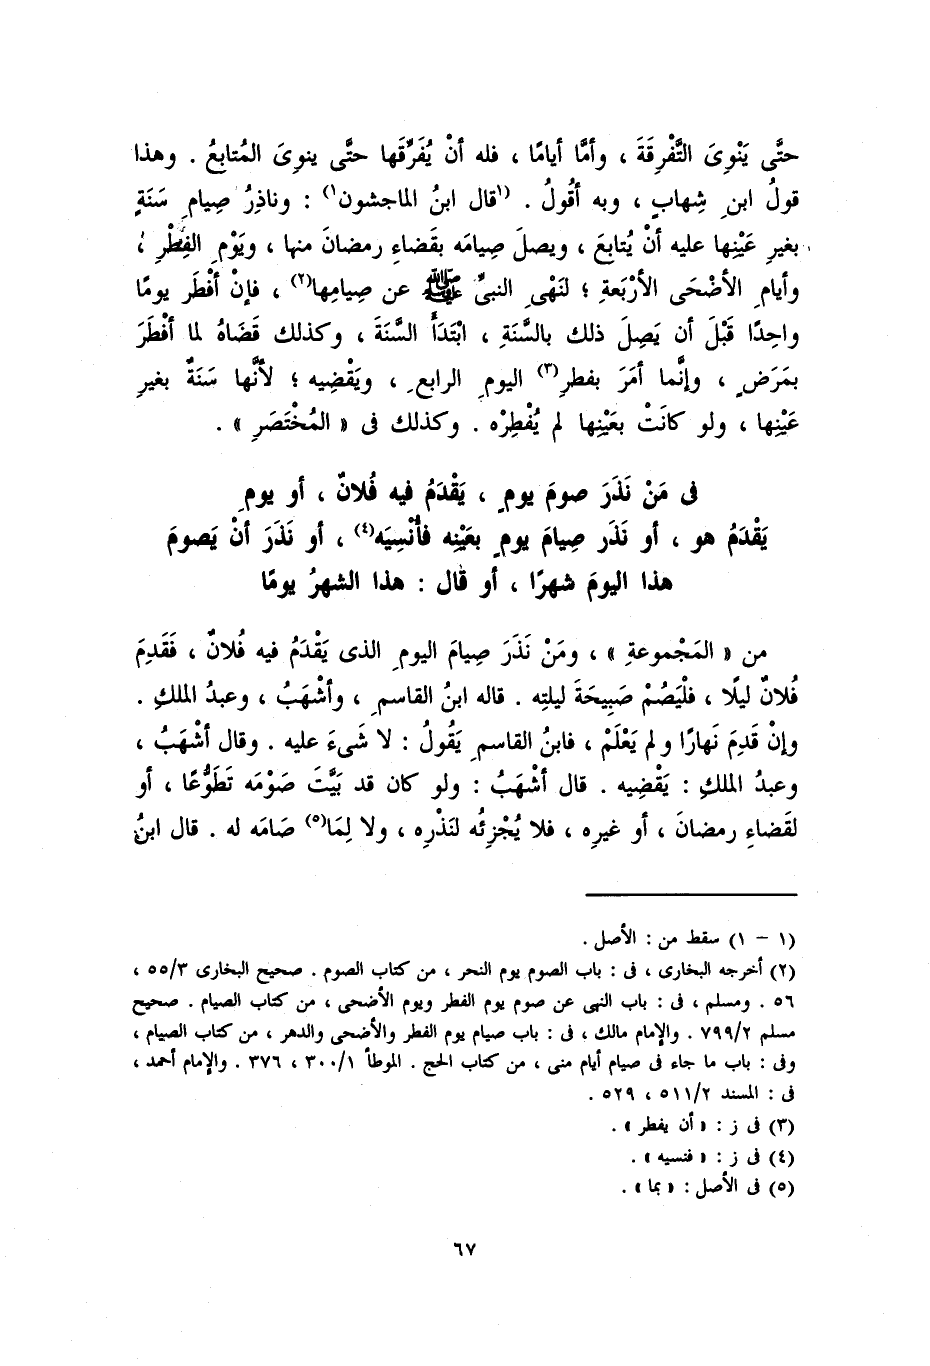 حتَّى يَنْوِىَ التَّفْرِقَةَ ، وأمَّا أيامًا ، فله أنْ يُفَرِّقَها حتَّى ينوِىَ المُتابعُ . وهذا
قولُ ابنِ شِهابٍ ، وبه أقُولُ . (١قال ابنُ الماجشون١) : وناذِرُ صِيامِ سَنَةٍ
بغيرِ عَيْنِها عليه أنْ يُتابعَ ، ويصلَ صِيامَه بقَضاءِ رمضانَ منها ، ويَوْمِ الفِطْرِ ،
وأيامِ الأضْحَى الأرْبَعةِ ؛ لنَهْىِ النبىِّ ﷺ عن صِيامِها(٢) ، فإنْ أفْطَر يومًا
واحِدًا قَبْلَ أن يَصِلَ ذلك بالسَّنَةِ ، ابْتَدَأ السَّنَةَ ، وكذلك قَضَاهُ لما أفْطَرَ
بمَرَضٍ ، وإنَّما أمَرَ بفطرِ(٣) اليومِ الرابعِ ، ويَقْضِيه ؛ لأنَّها سَنَةٌ بغيرِ
عَيْنِها ، ولو كانَتْ بعَيْنِها لم يُفْطِرْه . وكذلك فى « المُخْتَصَرِ » .
فى مَنْ نَذَرَ صومَ يومٍ ، يَقْدَمُ فيه فُلانٌ ، أو يومِ
يَقْدَمُ هو ، أو نَذَر صِيامَ يومٍ بعَيْنِه فأُنْسِيَه(٤) ، أو نَذَرَ أنْ يَصومَ
هذا اليومَ شهرًا ، أو قال : هذا الشهرُ يومًا
من « المَجْموعةِ » ، ومَنْ نَذَرَ صِيامَ اليومِ الذى يَقْدَمُ فيه فُلانٌ ، فَقَدِمَ
فُلانٌ ليلًا ، فلْيَصُمْ صَبِيحَةَ ليلتِه . قاله ابنُ القاسمِ ، وأشْهَبُ ، وعبدُ الملكِ .
وإنْ قَدِمَ نَهارًا ولم يَعْلَمْ ، فابنُ القاسمِ يَقُولُ : لا شَىءَ عليه . وقال أشْهَبُ ،
وعبدُ الملكِ : يَقْضِيه . قال أشْهَبُ : ولو كان قد بَيَّتَ صَوْمَه تَطَوُّعًا ، أو
لقَضاءِ رمضانَ ، أو غيرِه ، فلا يُجْزِئُه لنَذْرِه ، ولا لِمَا(٥) صَامَه له . قال ابنُ
(١ - ١) سقط من : الأصل .
(٢) أخرجه البخارى ، فى : باب الصوم يوم النحر ، من كتاب الصوم . صحيح البخارى ٥٥/٣ ،
٥٦ . ومسلم ، فى : باب النهى عن صوم يوم الفطر ويوم الأضحى ، من كتاب الصيام . صحيح
مسلم ٧٩٩/٢ . والإمام مالك ، فى : باب صيام يوم الفطر والأضحى والدهر ، من كتاب الصيام ،
وفى : باب ما جاء فى صيام أيام منى ، من كتاب الحج . الموطأ ٣٠٠/١ ، ٣٧٦ . والإمام أحمد ،
فى : المسند ٥١١/٢ ، ٥٢٩ .
(٣) فى ز : « أن يفطر » .
(٤) فى ز : « فنسيه » .
(٥) فى الأصل : « بما » .
٦٧